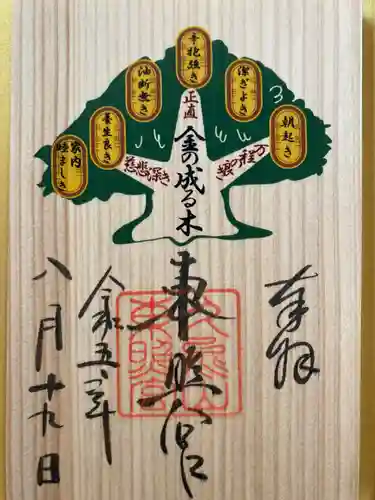 朝起き
潔ぎよき
辛抱強き
油断無き
養生良き
家内睦ましき
万の程の良き
正直
慈悲深き
金の成る木
奉拝
東照宮
令和五年
八月十九日